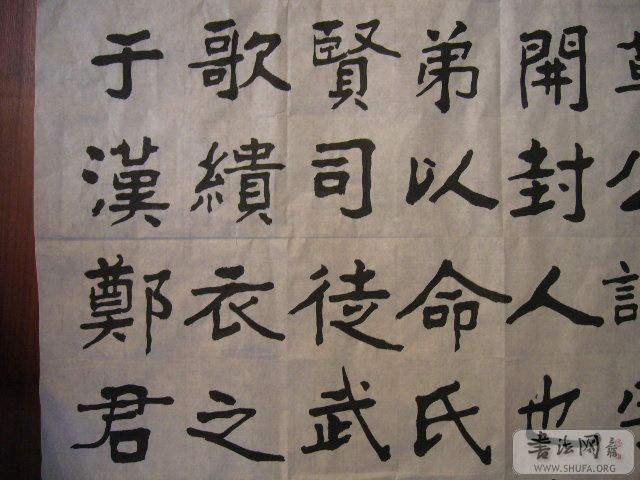 開封人也
弟以命氏
賢司徒武
歌繢衣之
于漢鄭君
书法网
WWW.SHUFA.ORG